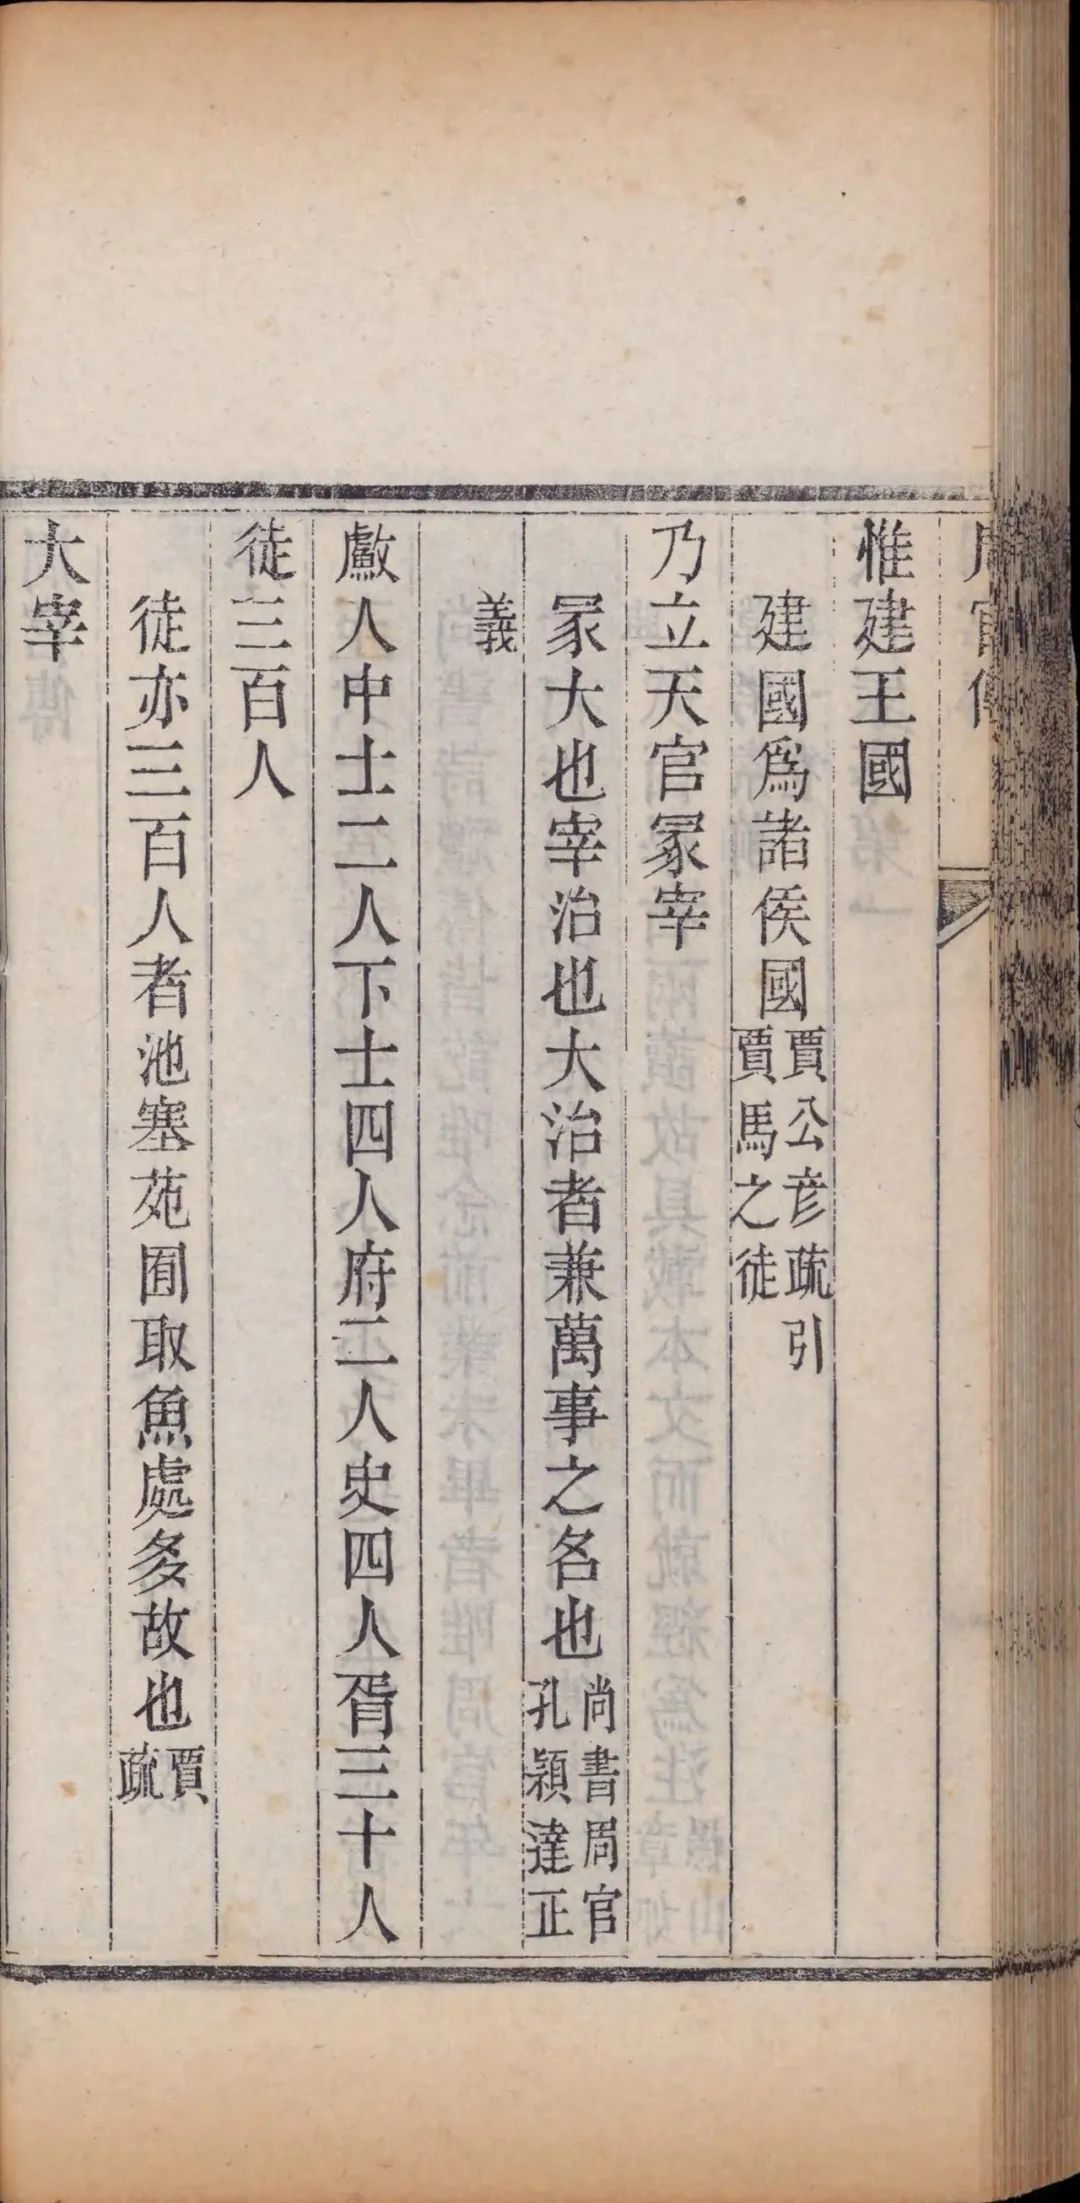 周官傳
惟建王國
建國爲諸侯國賈公彥疏引
賈馬之徒
乃立天官冢宰
冢大也宰治也大治者兼萬事之名也尚書周官
孔穎達正
義
䱷人中士二人下士四人府二人史四人胥三十人
徒三百人
徒亦三百人者池塞苑囿取魚處多故也賈
疏
大宰